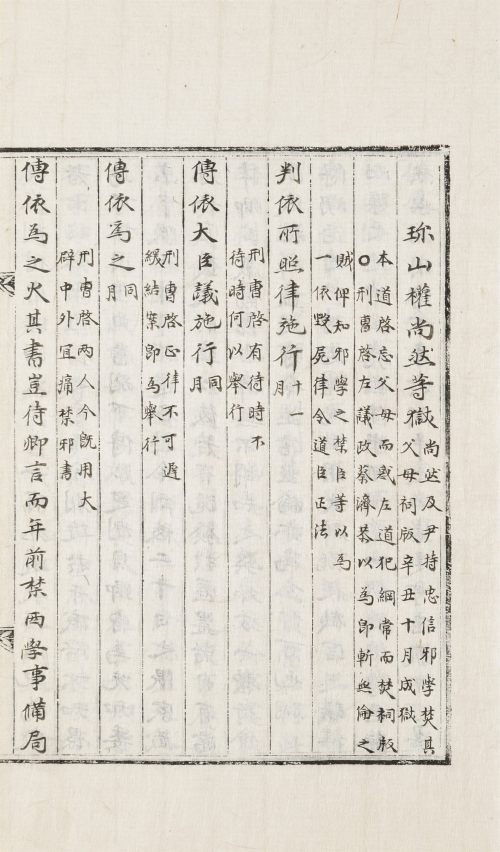 珎山權尚然等獄
尚然及尹持忠信邪學焚其
父母祠版辛丑十月成獄
本道啓忘父母而惑左道犯綱常而焚祠版
○刑曹啓左議政蔡濟恭以為卽斬無倫之
賊俾知邪學之禁臣等以為
一依毀屍律令道臣正法
判依所照律施行十一月
刑曹啓有待時不
待時何以舉行
傳依大臣議施行同月
刑曹啓正律不可遲
緩結案卽為舉行
傳依為之同月
刑曹啓兩人今旣用大
辟中外宜痛禁邪書
傳依為之火其書豈待卿言而年前禁西學事備局